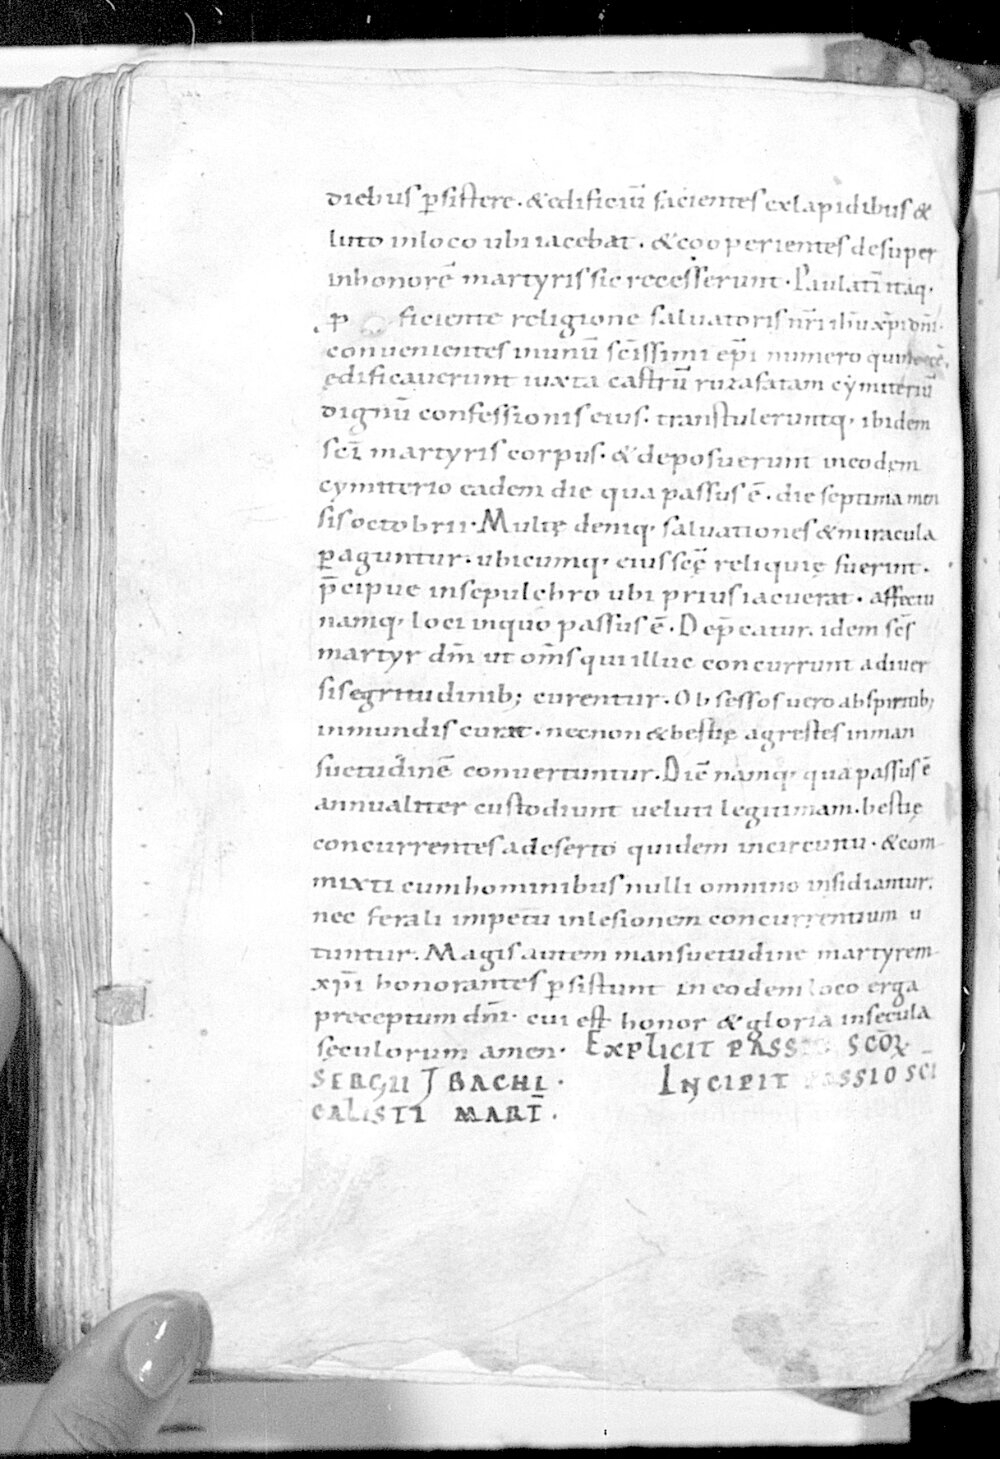 diebus p̄sistere. & edificiū facientes ex lapidibus &
luto in loco ubi iacebat. & cooperientes desuper
in honorē martyris sic recesserunt. Paulatī itaq·
p ficiente religione saluatoris nr̄i ih̄u xp̄i dn̄i.
conuenientes in unū sc̄issimi ep̄i numero
ędificauerunt iuxta castrū ruzafatam cymiteriū
dignū confessionis eius. transtuleruntq· ibidem
sc̄i martyris corpus. & deposuerunt in eodem
cymiterio eadem die qua passus ē. die septima men
sis octobrii. Multę deniq· saluationes & miracula
p̄aguntur. ubicumq· eius sc̄ę reliquię fuerint.
p̄cipue in sepulchro ubi prius iacuerat. affectu
namq· loci in quo passus ē. Dep̄catur idem sc̄s
martyr dm̄ ut om̄s qui illuc concurrunt a diuer
sis egritudinib; curentur. Obsessos uero ab spiritib;
inmundis curat. necnon & bestię agrestes in man
suetudinē conuertuntur. Diē namq· qua passus ē
annualiter custodiunt ueluti legitimam. bestię
concurrentes a deserto quidem in circuitu. & com
mixti cum hominibus nulli omnino insidiantur.
nec ferali impetu in lesionem concurrentium u
tuntur. Magis autem mansuetudine martyrem
xp̄i honorantes p̄sistunt in eodem loco erga
preceptum dn̄i. cui est honor & gloria in secula
sęculorum amen. EXPLICIT PASSIO SCŌꝜ
SERGII ⁊ BACHI. INCIPIT PASSIO SCI
CALISTI MART̄.